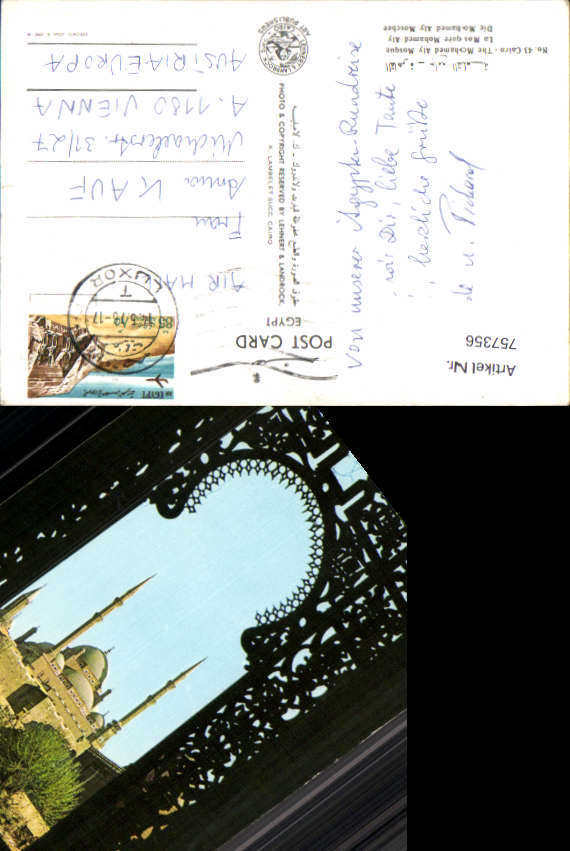 القاهرة - جامع القلعة
No 43 Cairo - The Mohamed Aly Mosque
La Mosquée Mohamed Aly
Die Mohamed Aly Moschee
Von unserer Ägypten-Rundreise
Dir, liebe Tante
herzliche Grüße
Artikel Nr.
757356
POST CARD
EGYPT
LEHNERT & LANDROCK
ART PUBLISHERS
CAIRO
PHOTO & COPYRIGHT RESERVED BY LEHNERT & LANDROCK
K. LAMBELET SUCC. CAIRO
EGYPT
LUXOR
T
AIR MAIL
Frau
Anna KAUF
Michaelerstr. 31/27
A. 1180 VIENNA
AUSTRIA-EUROPA